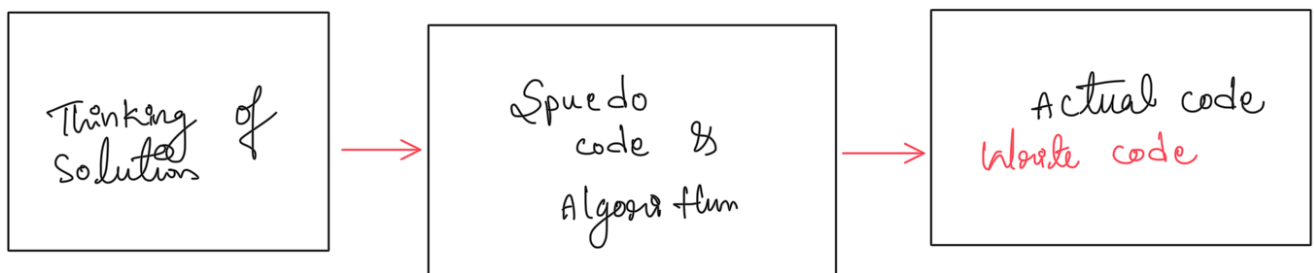 Thinking of
Solution
Spuedo
code &
Algorithm
Actual code
Write code